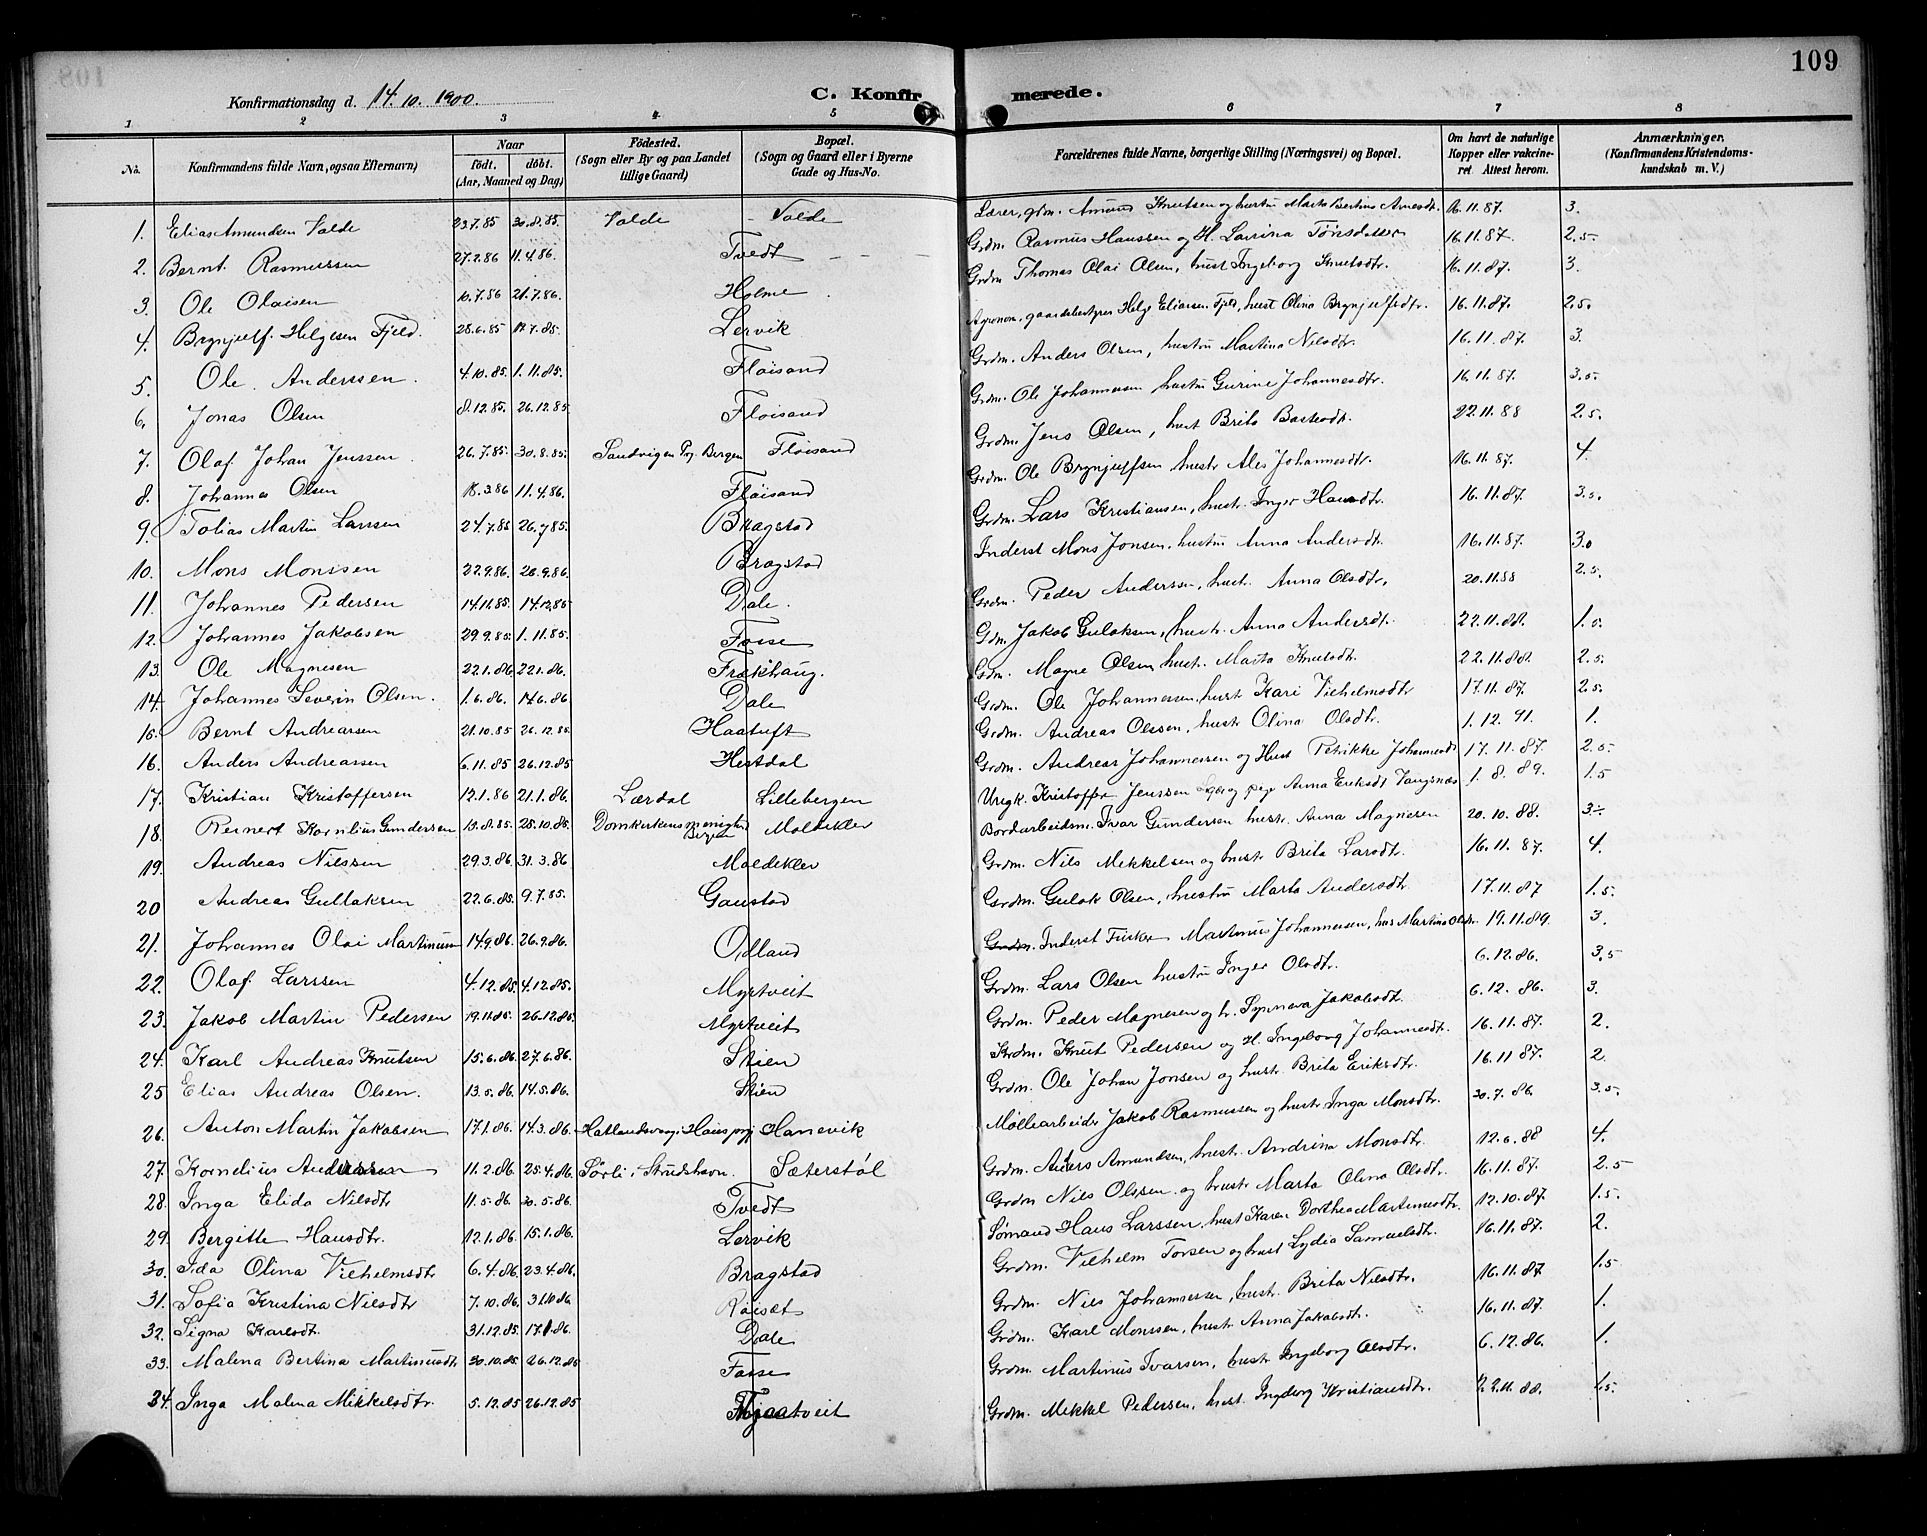 109
Konfirmationsdag d. 14.10.1900.
C. Konfirmerede.
1 2 3 4 5 6 7 8
No.
Konfirmandens fulde Navn, ogsaa Efternavn)
Naar
födt. döbt.
(Aar, Maaned og Dag)
Födested.
(Sogn eller By og paa Landet
tillige Gaard)
Bopæl.
(Sogn og Gaard eller i Byerne
Gade og Hus-No.
Forældrenes fulde Navne, borgerlige Stilling (Næringsvei) og Bopæl.
Om havt de naturlige
Kopper eller vakcine-
ret Attest herom.
Anmærkninger.
(Konfirmandens Kristendoms-
kundskab m. V.)
1. Elias Amundsen Valde 23.7.85 30.8.85. Valde - Valde Lærer, grdm. Amund Knutsen og hustru Marta Bertine Arnesdt. 16.11.87. 3.
2. Bernt Rasmussen 27.2.86 11.4.86. Tvedt Grdm. Rasmus Hanssen og H. Lavina Tönsdatter 16.11.87. 2.5.
3. Ole Olaisen 10.7.86 21.7.86. Holme Grdm Thomas Olai Olsen, hust Ingeborg Knutsdtr. 16.11.87. 3.
4. Brynjulf Helgesen Fjeld. 28.6.85 17.7.85. Lervik Agronom, gaardsbestyrer Helge Eliassen Fjeld, hust Olina Brynjulfsdtr. 16.11.87. 2.5.
5. Ole Anderssen 4.10.85. 1.11.85. Floisand Grdm. Anders Olsen, hustru Martina Nilsdtr. 16.11.87. 3.
6. Jonas Olsen 8.12.85. 26.12.85 Floisand Grdm. Ole Johannessen hustru Gurine Johannesdtr. 16.11.87. 3.5.
7. Olaf Johan Jenssen 26.7.85. 30.8.85. Sandvigen Prg. Bergen Floisand Grdm. Jens Olsen, hust Brita 22.11.88 2.5.
8. Johannes Olsen 18.3.86 11.4.86. Floisand Grdm. Ole Brynjulfsen, hustr. Ales Johannesdtr. 16.11.87. 4.
9. Tobias Martin Larssen 24.7.85 26.7.85. Bragstad Grdm. Lars Kristiansen, hustr. Inger Hansdtr. 16.11.87. 3.5.
10. Mons Monssen 22.9.86. 26.9.86. Bragstad Inderst Mons Jonsen, hustru Anna Andersdtr. 16.11.87. 3.0
11. Johannes Pedersen 14.11.85. 14.12.85 Dale. Grdm. Peder Anderssen, hustr. Anna Olsdtr, 20.11.88 2.5.
12. Johannes Jakobsen 29.9.85. 1.11.85. Fosse Gdm. Jakob Gulaksen, hustr. Anna Andersdt. 22.11.88. 1.0.
13. Ole Magnesen 22.1.86. 22.1.86. Frekhaug. Gdm. Magne Olsen, hust. Marta Knutsdtr. 22.11.88. 2.5.
14. Johannes Severin Olsen. 1.6.86. 14.6.86 Dale Grdm. Ole Johannessen, hustr Kari Vilhelmsdtr 17.11.87. 2.5.
15. Bernt Andreassen 21.10.85 26.12.85. Haatuft Grdm. Andreas Olssen, hustr Olina Olsdtr. 1.12.91. 1.
16. Anders Andreassen 6.11.85 26.12.85 Hestdal Grdm. Andreas Johannessen og Hust Petrikke Johannesdt 17.11.87. 2.5.
17. Kristian Kristoffersen 12.1.86 21.1.86. Lærdal Lillebergen Ungk. Kristoffer Jenssen og pige Anna Eriksdt Vangsnæs 1.8.89. 1.5
18. Reinert Kornlius Gundersen 13.8.85. 25.10.85. Domkirkens menighed Bergen Moldeklev Bordarbeidsm. Ivar Gundersen hustr. Anna Magnesen 20.10.88. 3÷
19. Andreas Nilssen 29.3.86. 31.3.86 Moldeklev Grdm. Nils Mikkelsen og hustr Brita Larsdtr. 16.11.87. 4.
20 Andreas Gullaksen 22.6.85. 9.7.85. Gaustad Grdm. Gulak Olsen, hustru Marta Andersdtr 17.11.87 1.5.
21. Johannes Olai Martinusen 14.9.86. 26.9.86. Odland Grdm. Inderst Fisker Martinus Johannessen, hus Martina Olsdtr. 19.11.89. 3.
22. Olaf Larssen 4.12.85. 4.12.85. Myrtveit Grdm. Lars Olsen hustru Inger Olsdtr. 6.12.86. 3.5
23. Jakob Martin Pedersen 19.11.85. 26.12.85. Myrtveit Grdm. Peder Magnesen og h. Synneva Jakobsdt. 6.12.86. 3.
24. Karl Andreas Knutsen 15.6.86. 27.6.86. Skien Grdm. Knut Pedersen og H. Ingeborg Johannesdt. 16.11.87. 2.
25 Elias Andreas Olsen. 13.5.86. 14.5.86. Skien Grdm. Ole Johan Jonsen og hustr Brita Eriksdtr. 16.11 87. 2.
26. Anton Martin Jakobsen 17.1.86. 14.3.86. Hatlandsvaag i Haus prgj Hanevik Møllearbeider Jakob Rasmussen og hustr Inga Monsdtr. 30.7.86. 3.5.
27. Kornelius Anderssen 11.2.86. 25.4.86. Sørli i Strudshavn. Sæterstøl Grdm. Anders Amundsen, hustr. Andrina Monsdtr. 12.6.88 4.
28. Inga Elida Nilsdtr 11.5.86. 30.5.86. Tvedt Grdm Nils Olssen og hustr Marta Olina Olsdtr. 16.11.87. 2.5
29. Bergitte Hansdtr. 12.1.86. 15.1.86. Lervik Sømand Hans Larssen, hust Karen Dorthea Martinusdtr. 12.10.87. 1.5.
30. Ida Olina Vilhelmsdtr 6.4.86. 23.4.86. Bragstad Grdm. Vilhelm Torsen og hust Lydia Samuelsdtr. 16.11.87. 2.
31. Sofia Kristina Nilsdtr 7.10.86. 31.10.86. Røiset Grdm. Nils Johannessen, hustr. Brita Nilsdtr. 16.11.87. 1.5
32. Signa Karlsdt. 31.12.85. 17.1.86. Dale Grdm. Karl Monssen, hustr Anna Jakobsdt. 16.11.87. 1.
33. Malena Bertina Martinusdtr 30.10.85. 26.12.85 Fosse Grdm. Martinus Ivarsen, hustr Ingeborg Olsdtr. 6.12.86. 1.
34. Inga Malena Mikkelsdtr. 5.12.85 26.12.85 Grdm. Mikkel Pedersen, hust Ingeborg Kristiansdtr. 22.11.88. 1.5.